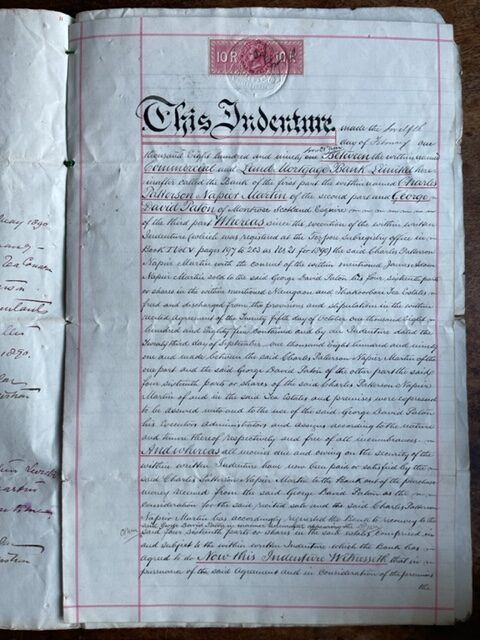 10 R 10 R
This Indenture made the twelfth
day of February one
thousand Eight hundred and ninety one
Between the within named
Commercial and Land Mortgage Bank Limited here
inafter called the Bank of the first part the within named Charles
Patterson Napier Martin of the second part and George
David Paton of Montrose Scotland Esquire
of the third part Whereas since the execution of the within written
Indenture (which was registered at the Tezpore Subregistry office in
Book I Vol V pages 197 to 203 as No. 21 for 1890) the said Charles Patterson
Napier Martin with the consent of the within mentioned James Adam
Napier Martin sold to the said George David Paton his four sixteenth parts
or shares in the within mentioned and Thakoorbari Tea Estates
freed and discharged from the provisions and stipulations in the within
recited Agreement of the Twenty fifth day of October one thousand Eight
hundred and Eighty five contained and by an Indenture dated the
Twenty third day of September one thousand Eight hundred and ninety
one and made between the said Charles Patterson Napier Martin of the
one part and the said George David Paton of the other part the said
four sixteenth parts or shares of the said Charles Patterson Napier
Martin of and in the said Tea Estates and premises were expressed
to be assured unto and to the use of the said George David Paton
his Executors Administrators and assigns according to the nature
and tenure thereof respectively and free of all incumbrances
And whereas all monies due and owing on the security of the
within written Indenture have now been paid or satisfied by the
said Charles Patterson Napier Martin to the Bank out of the purchase
money received from the said George David Paton as the
consideration for the said recited sale and the said Charles Patterson
Napier Martin has accordingly requested the Bank to reconvey to the
said George David Paton in manner hereinafter appearing the
said four sixteenth parts or shares in the said estates comprised in
and subject to the within written Indenture which the Bank has
agreed to do Now this Indenture Witnesseth that in
pursuance of the said Agreement and in consideration of the premises
the